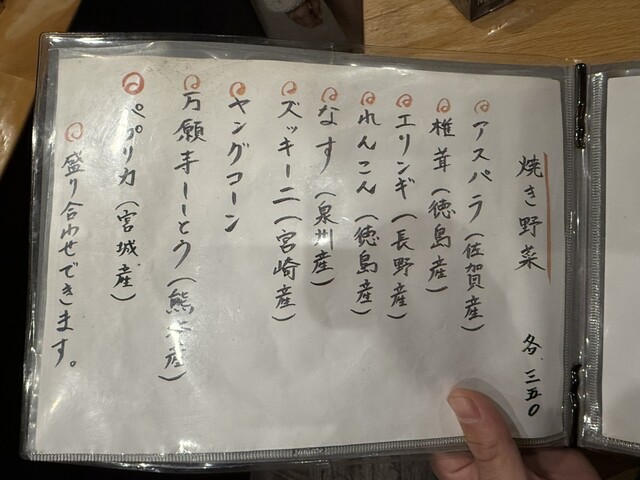 焼き野菜 各 三五〇
アスパラ(佐賀産)
椎茸(徳島産)
エリンギ(長野産)
れんこん(徳島産)
なす(泉州産)
ズッキーニ(宮崎産)
ヤングコーン
万願寺ししとう(熊本産)
パプリカ(宮城産)
盛り合わせできます。